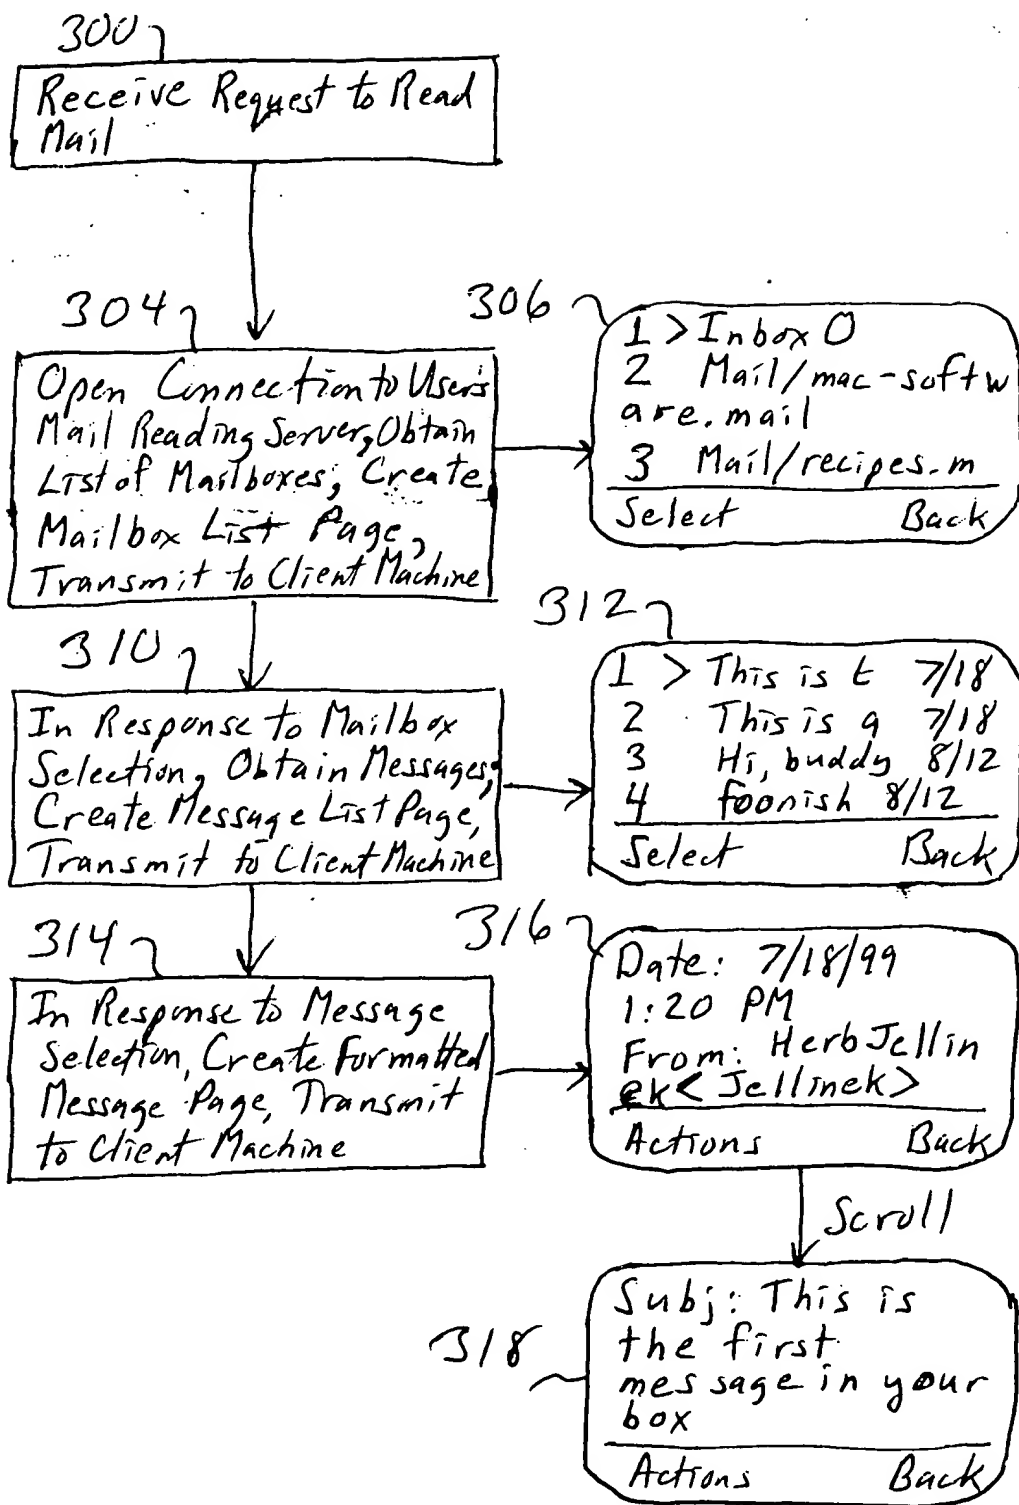 300
Receive Request to Read
Mail
304
Open Connection to User's
Mail Reading Server, Obtain
List of Mailboxes, Create
Mailbox List Page,
Transmit to Client Machine
306
1 > Inbox 0
2 Mail/mac-softw
are.mail
3 Mail/recipes.m
Select Back
310
In Response to Mailbox
Selection, Obtain Messages,
Create Message List Page,
Transmit to Client Machine
312
1 > This is t 7/18
2 This is a 7/18
3 Hi, buddy 8/12
4 foonish 8/12
Select Back
314
In Response to Message
Selection, Create Formatted
Message Page, Transmit
to Client Machine
316
Date: 7/18/99
1:20 PM
From: Herb Jellin
ek<Jellinek>
Actions Back
Scroll
318
Subj: This is
the first
message in your
box
Actions Back